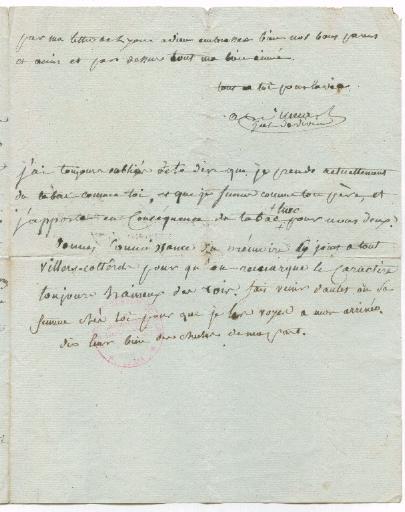 par ma lettre de Lyon adieu embrasse bien nos bons parens
et amis et par dessus tout ma bien aimée
tout a toi pour la vie
Alex
Gal de division
j'ai toujours oublié de te dire que je prends actuellement
du tabac comme toi, et que je fume comme ton père, et
j'apporte en Conséquence du tabac turc pour nous deux.
donnes Connoissance du mémoire cy joint a tout
villers-cotterêts pour qu'on remarque le Caractère
toujours haineux des rois. fais venir ou sa
femme chéz toi pour que je les voye a mon arrivée.
dis leur bien des choses de ma part.